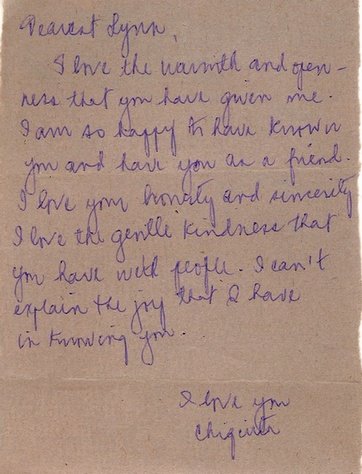 Dearest Lynn,
I love the warmth and open-
ness that you have given me.
I am so happy to have known
you and have you as a friend.
I love your honesty and sincerity
I love the gentle kindness that
you have with people. I can't
explain the joy that I have
in knowing you.
I love you
Chiquita